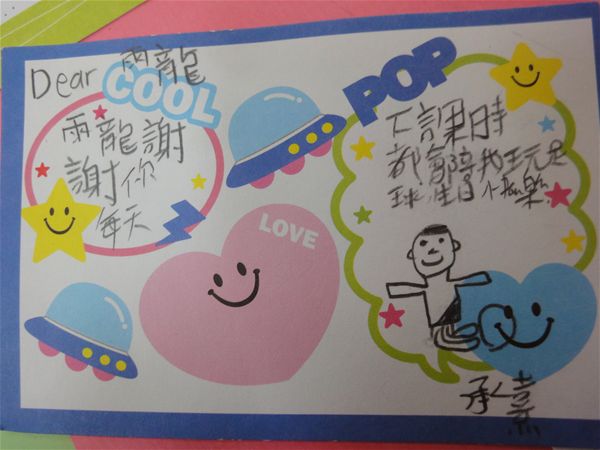 Dear 雨龍
COOL
雨龍謝
謝你
每天
LOVE
POP
下課時
都會陪我玩足
球,生日快樂
承熹